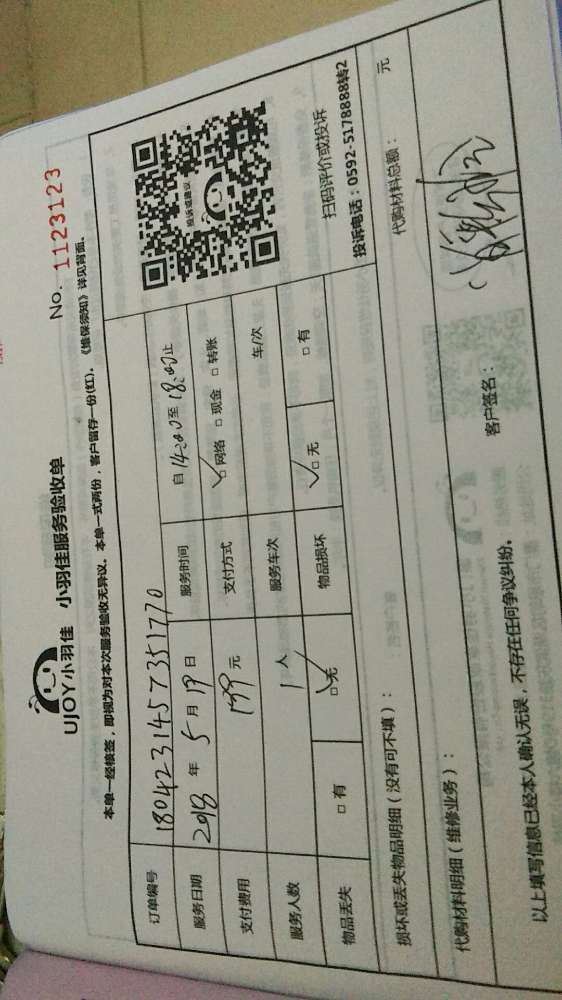 UJOY小羽佳 小羽佳服务验收单
No. 1123123
本单一经核签，即视为对本次服务验收无异议。本单一式两份，客户留存一份(红)。《维保须知》详见背面。
订单编号 1804231457351770
服务日期 2018 年 5 月 19 日 服务时间 自 14:00 至 18:00 止
支付费用 199 元 支付方式 ☑网络 □现金 □转账
服务人数 1 人 服务车次 车/次
物品丢失 □有 ☑无 物品损坏 ☑无 □有
投诉或建议
扫码评价或投诉
投诉电话：0592-5178888转2
损坏或丢失物品明细（没有可不填）：
代购材料明细（维修业务）： 代购材料总额： 元
以上填写信息已经本人确认无误，不存在任何争议纠纷。 客户签名：